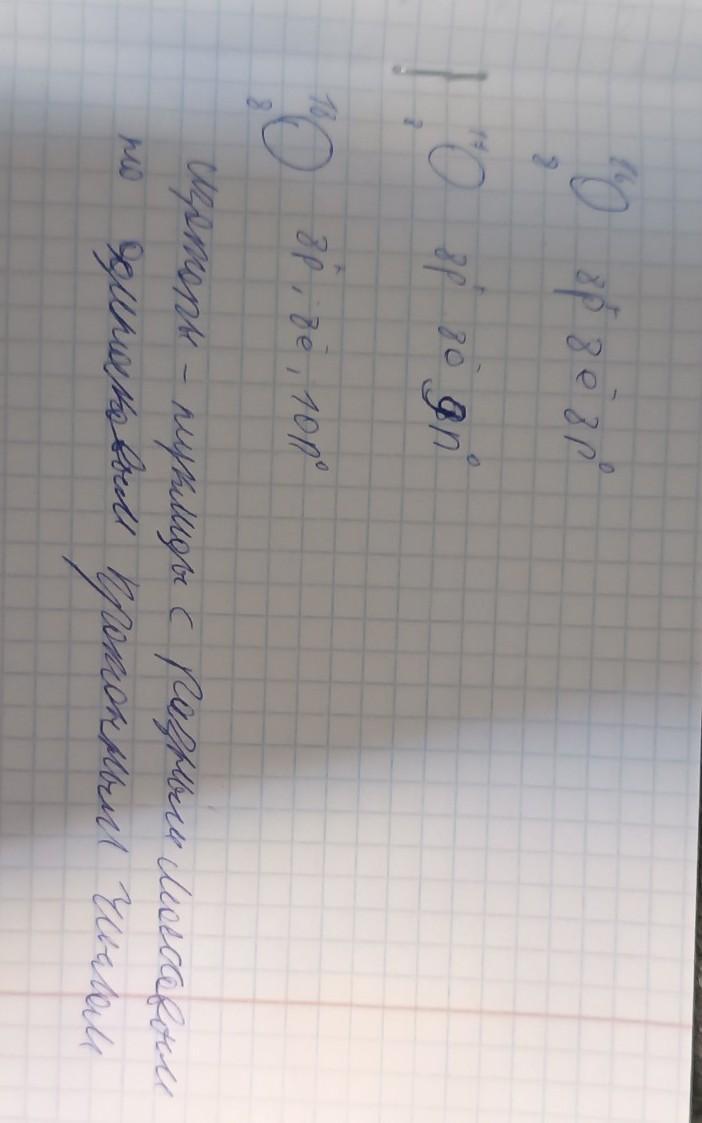 ¹⁶₈O 8p⁺ 8e⁻ 8n⁰
¹⁷₈O 8p⁺ 8e⁻ 9n⁰
¹⁸₈O 8p⁺, 8e⁻, 10n⁰
Изотопы – нуклиды с разным массовым
но одинаковым протонным числом